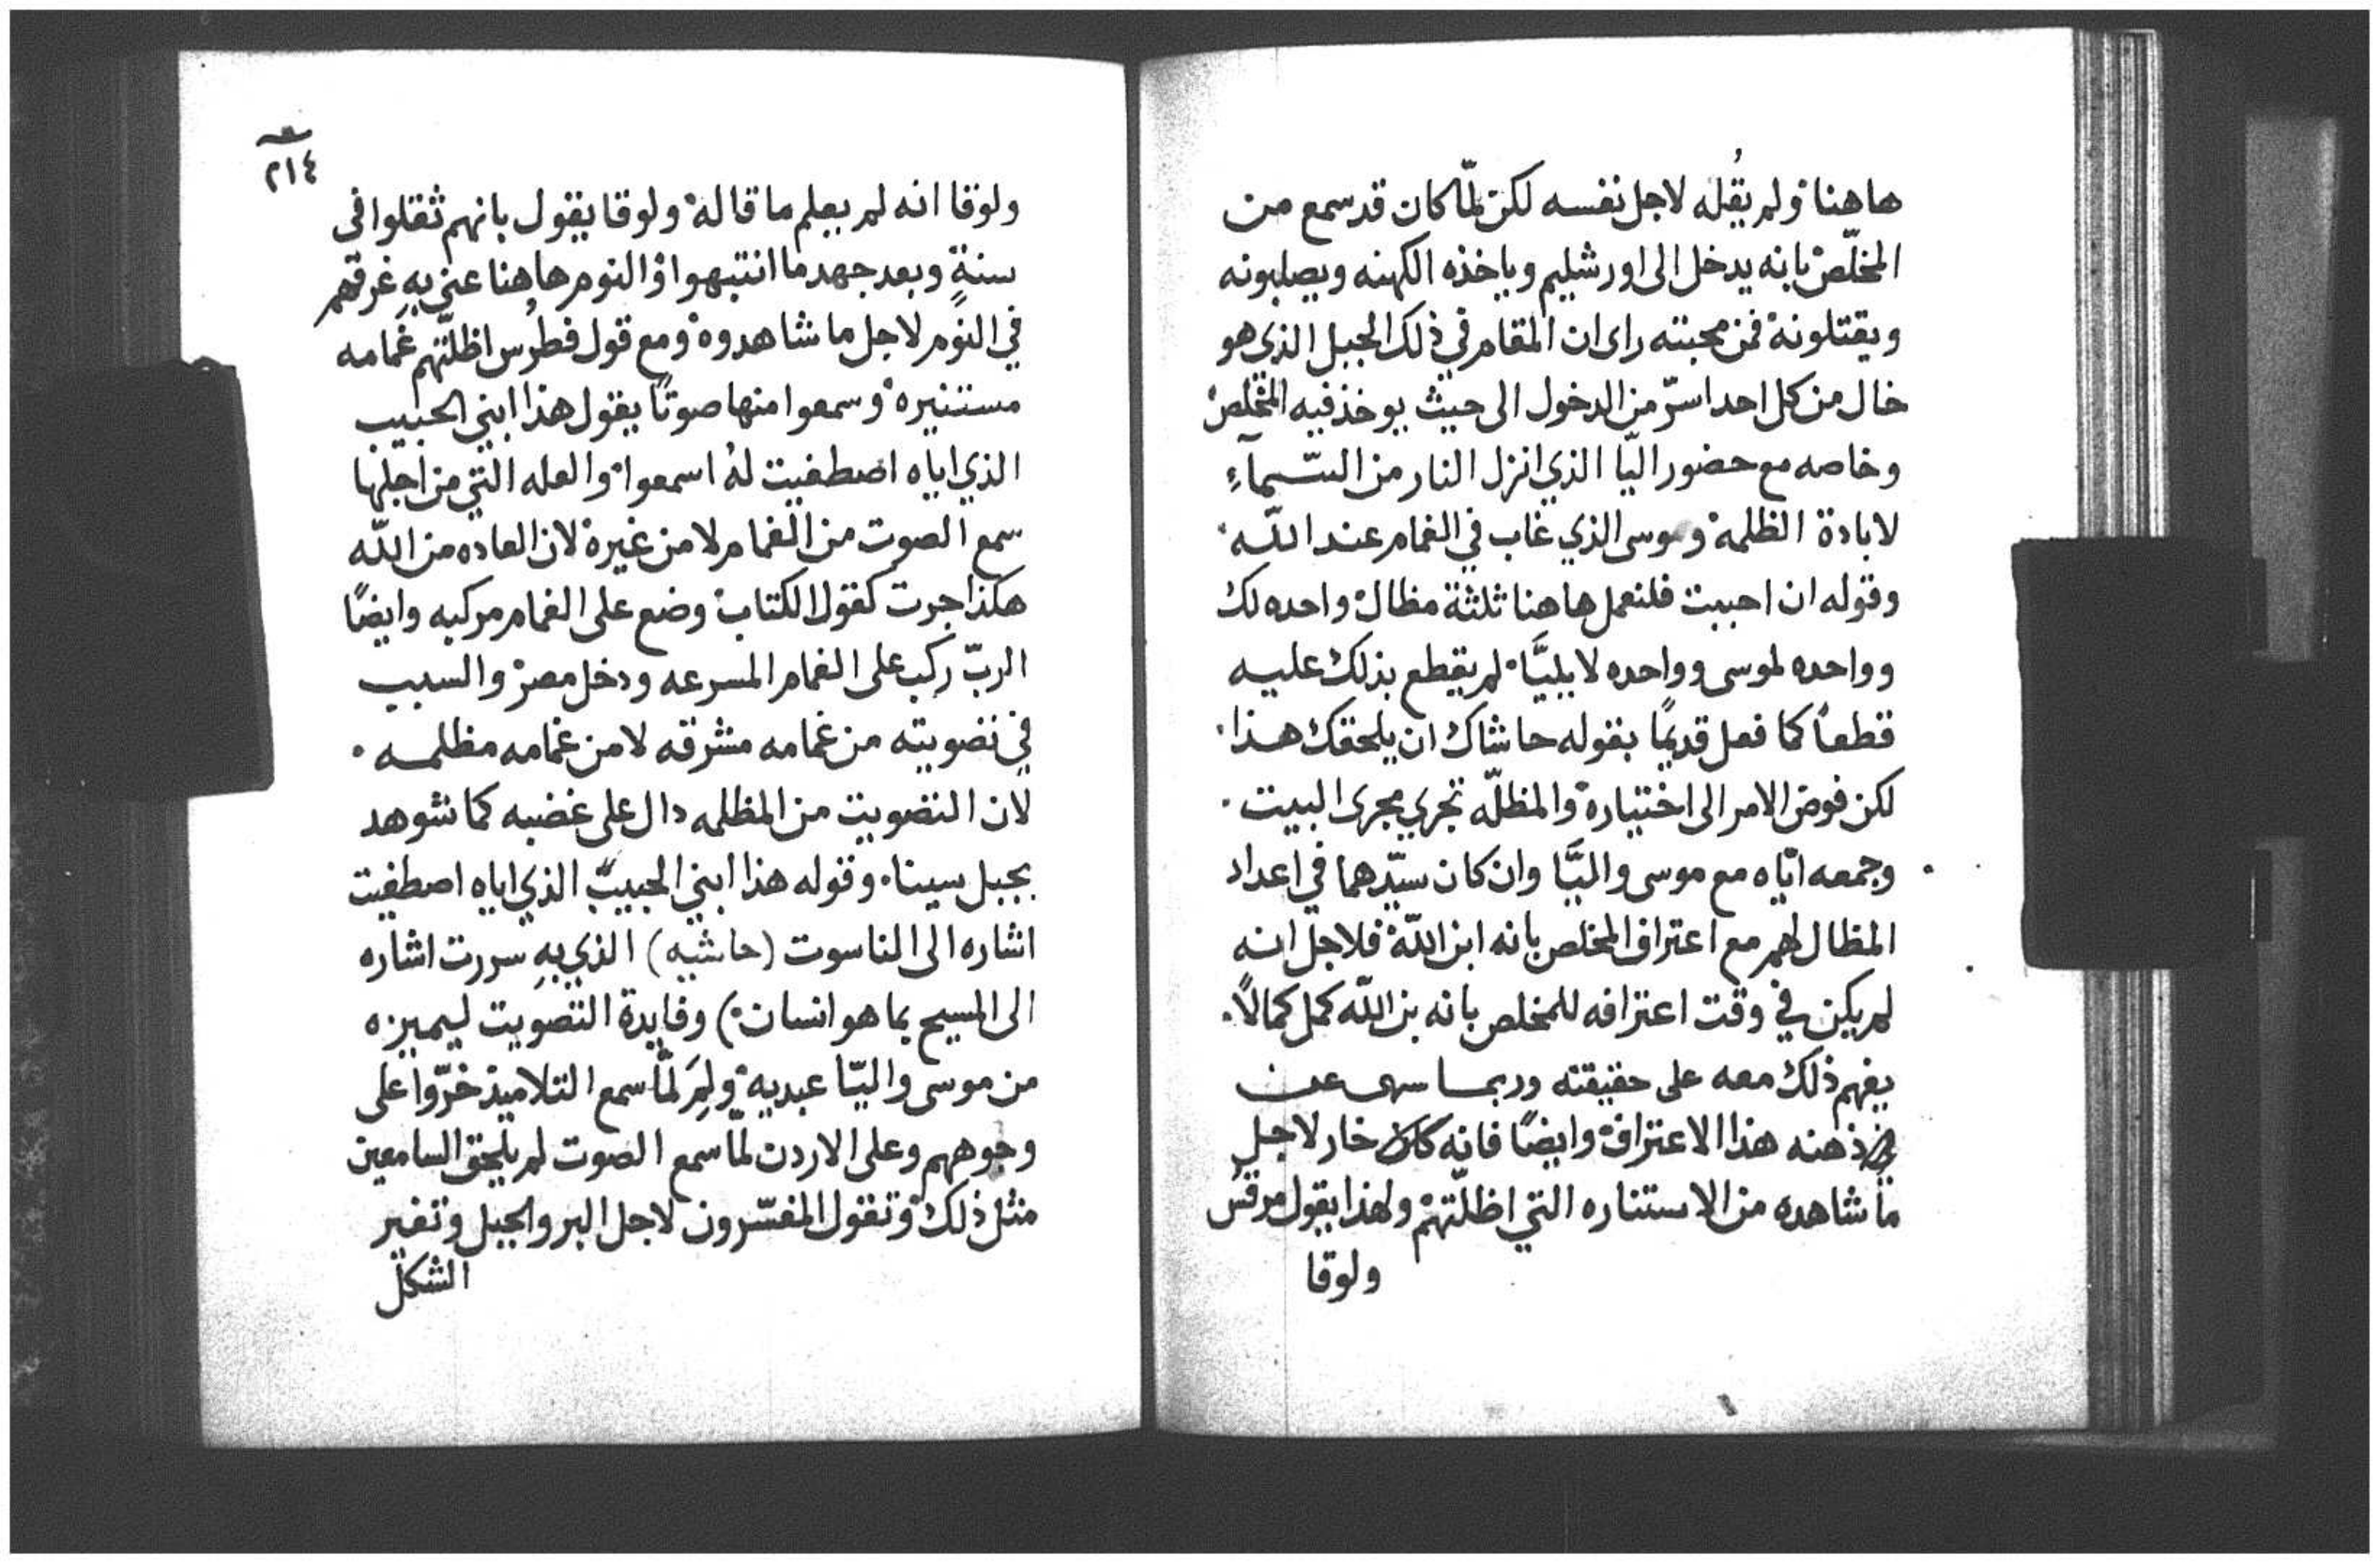 هاهنا ولم يقُله لاجل نفسه لكن لمّا كان قد سمع من
المخلّص بانه يدخل الى اورشليم وياخذه الكهنه ويصلبونه
ويقتلونه فمن محبته راى ان المقام في ذلك الجبل الذي هو
خال من كل احد اسرّ من الدخول الى حيث يوخذ فيه المخلص
وخاصه مع حضور اليّا الذي انزل النار من السّمآءِ
لابادة الظلمه وموسى الذي غاب في الغمام عند اللّه
وقوله ان احببت فلنعمل هاهنا ثلثة مظال واحده لك
وواحده لموسى وواحده لايليَّا لم يقطع بذلك عليه
قطعاً كما فعل قديمًا بقوله حاشاك ان يلحقك هذا
لكن فوض الامر الى اختياره والمظلّه تجري مجرى البيت
وجمعه ايّاه مع موسى واليَّا وان كان سيّدهما في اعداد
المظال لهم مع اعتراف المخلص بانه ابن اللّه فلاجل انه
لم يكن في وقت اعترافه للمخلص بانه بن اللّه كمل كمالاً
يفهم ذلك معه على حقيقته وربما سهى عن
ذهنه هذا الاعتراف وايضًا فانه كان خار لاجل
ما شاهده من الاستناره التي اظلّتهم ولهذا يقول مرقس
ولوقا
٢١٤
ولوقا انه لم يعلم ما قاله ولوقا يقول بانهم ثقلوا في
سنةٍ وبعد جهد ما انتبهوا والنوم هاهنا عنى بهِ غرقهم
في النوم لاجل ما شاهدوه ومع قول فطرُس اظلّتهم غمامه
مستنيره وسمعوا منها صوتًا يقول هذا ابني الحبيب
الذي اياه اصطفيت لهُ اسمعوا والعله التي من اجلها
سمع الصوت من الغمام لا من غيره لان العاده من اللّه
هكذا جرت كقول الكتاب وضع على الغمام مركبه وايضًا
الربّ ركب على الغمام المسرعه ودخل مصر والسبب
في تصويته من غمامه مشرقه لا من غمامه مظلمه
لان التصويت من المظلمه دال على غضبه كما شوهد
بجبل سينا وقوله هذا ابني الحبيبّ الذي اياه اصطفيت
اشاره الى الناسوت (حاشيه) الذي بهِ سررت اشاره
الى المسيح بما هو انسان) وفايدة التصويت ليميزه
من موسى واليّا عبديه ولِمَ لمّا سمع التلاميذ خرّوا على
وجوههم وعلى الاردن لمّا سمع الصوت لم يلحق السامعين
مثل ذلك وتقول المفسّرون لاجل البر والجبل وتغير
الشكل